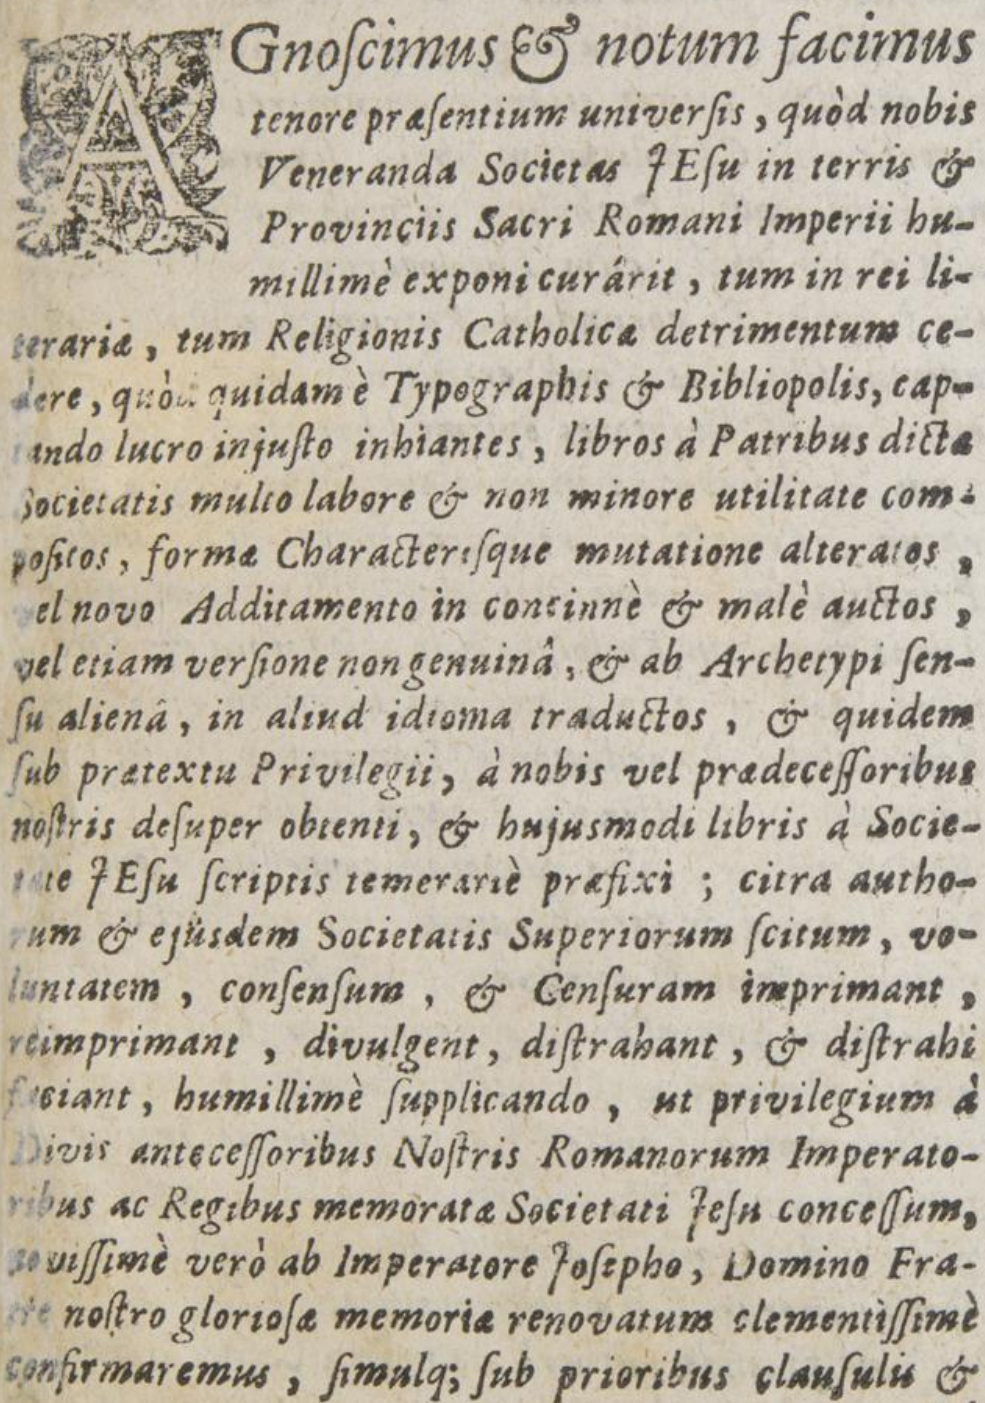 AGnoſcimus & notum facimus
tenore præſentium univerſis, quòd nobis
Veneranda Societas JEſu in terris &
Provinciis Sacri Romani Imperii hu-
millimè exponi curârit, tum in rei li-
terariæ, tum Religionis Catholicæ detrimentum ce-
dere, quòd quidam è Typographis & Bibliopolis, cap-
tando lucro injuſto inhiantes, libros à Patribus dictæ
Societatis multo labore & non minore utilitate com-
poſitos, formæ Characteriſque mutatione alteratos,
vel novo Additamento in concinnè & malè auctos,
vel etiam verſione non genuinâ, & ab Archetypi ſen-
ſu alienâ, in aliud idioma traductos, & quidem
ſub prætextu Privilegii, à nobis vel prædeceſſoribus
noſtris deſuper obtenti, & hujusmodi libris à Socie-
tate JEſu ſcriptis temerariè præfixi; citra autho-
rum & ejusdem Societatis Superiorum ſcitum, vo-
luntatem, conſenſum, & Cenſuram imprimant,
reimprimant, divulgent, diſtrahant, & diſtrahi
faciant, humillimè ſupplicando, ut privilegium à
Divis anteceſſoribus Noſtris Romanorum Imperato-
ribus ac Regibus memoratæ Societati Jeſu conceſſum,
noviſſimè verò ab Imperatore Joſepho, Domino Fra-
tre noſtro glorioſæ memoriæ renovatum clementiſſimè
confirmaremus, ſimulq; ſub prioribus clauſulis &